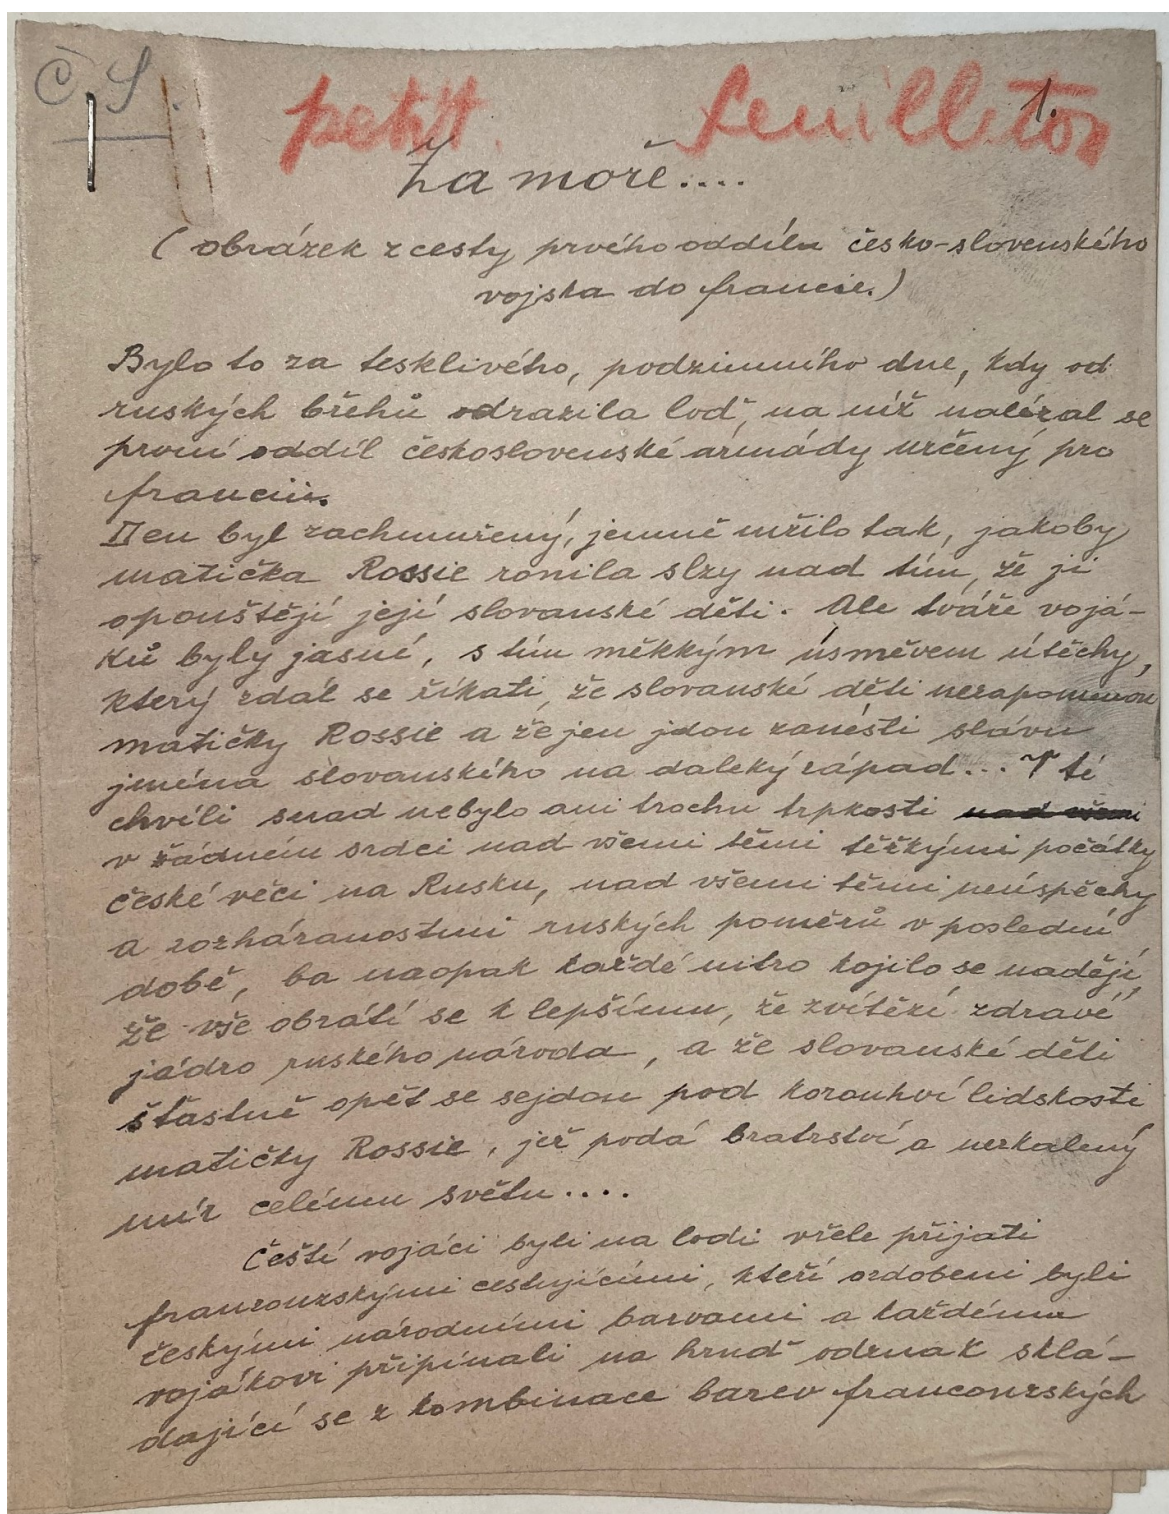 Č. S.
petit. feuilleton
1.
Za moře....
(obrázek z cesty prvého oddílu česko-slovenského
vojska do francie.)
Bylo to za tesklivého, podzimního dne, kdy od
ruských břehů odrazila loď, na níž nalézal se
první oddíl československé armády určený pro
francii.
Den byl zachmuřený, jemně mžilo tak, jakoby
matička Rossie ronila slzy nad tím, že ji
opouštějí její slovanské děti. Ale tváře vojá-
ků byly jasné, s tím měkkým úsměvem útěchy,
který zdál se říkati, že slovanské děti nezapomenou
matičky Rossie a že jen jdou zanésti slávu
jména slovanského na daleký západ... V té
chvíli snad nebylo ani trochu trpkosti nad všemi
v žádném srdci nad všemi těmi těžkými počátky
české věci na Rusku, nad všemi těmi neúspěchy
a rozháranostmi ruských poměrů v poslední
době, ba naopak každé nitro kojilo se nadějí,
že vše obrátí se k lepšímu, že zvítězí zdravé
jádro ruského národa, a že slovanské děti
šťastně opět se sejdou pod korouhví lidskosti
matičky Rossie, jež podá bratrství a nezkalený
mír celému světu....
Čeští vojáci byli na lodi vřele přijati
francouzskými cestujícími, kteří ozdobeni byli
českými národními barvami a každému
vojákovi připínali na hruď odznak sklá-
dající se z kombinace barev francouzských